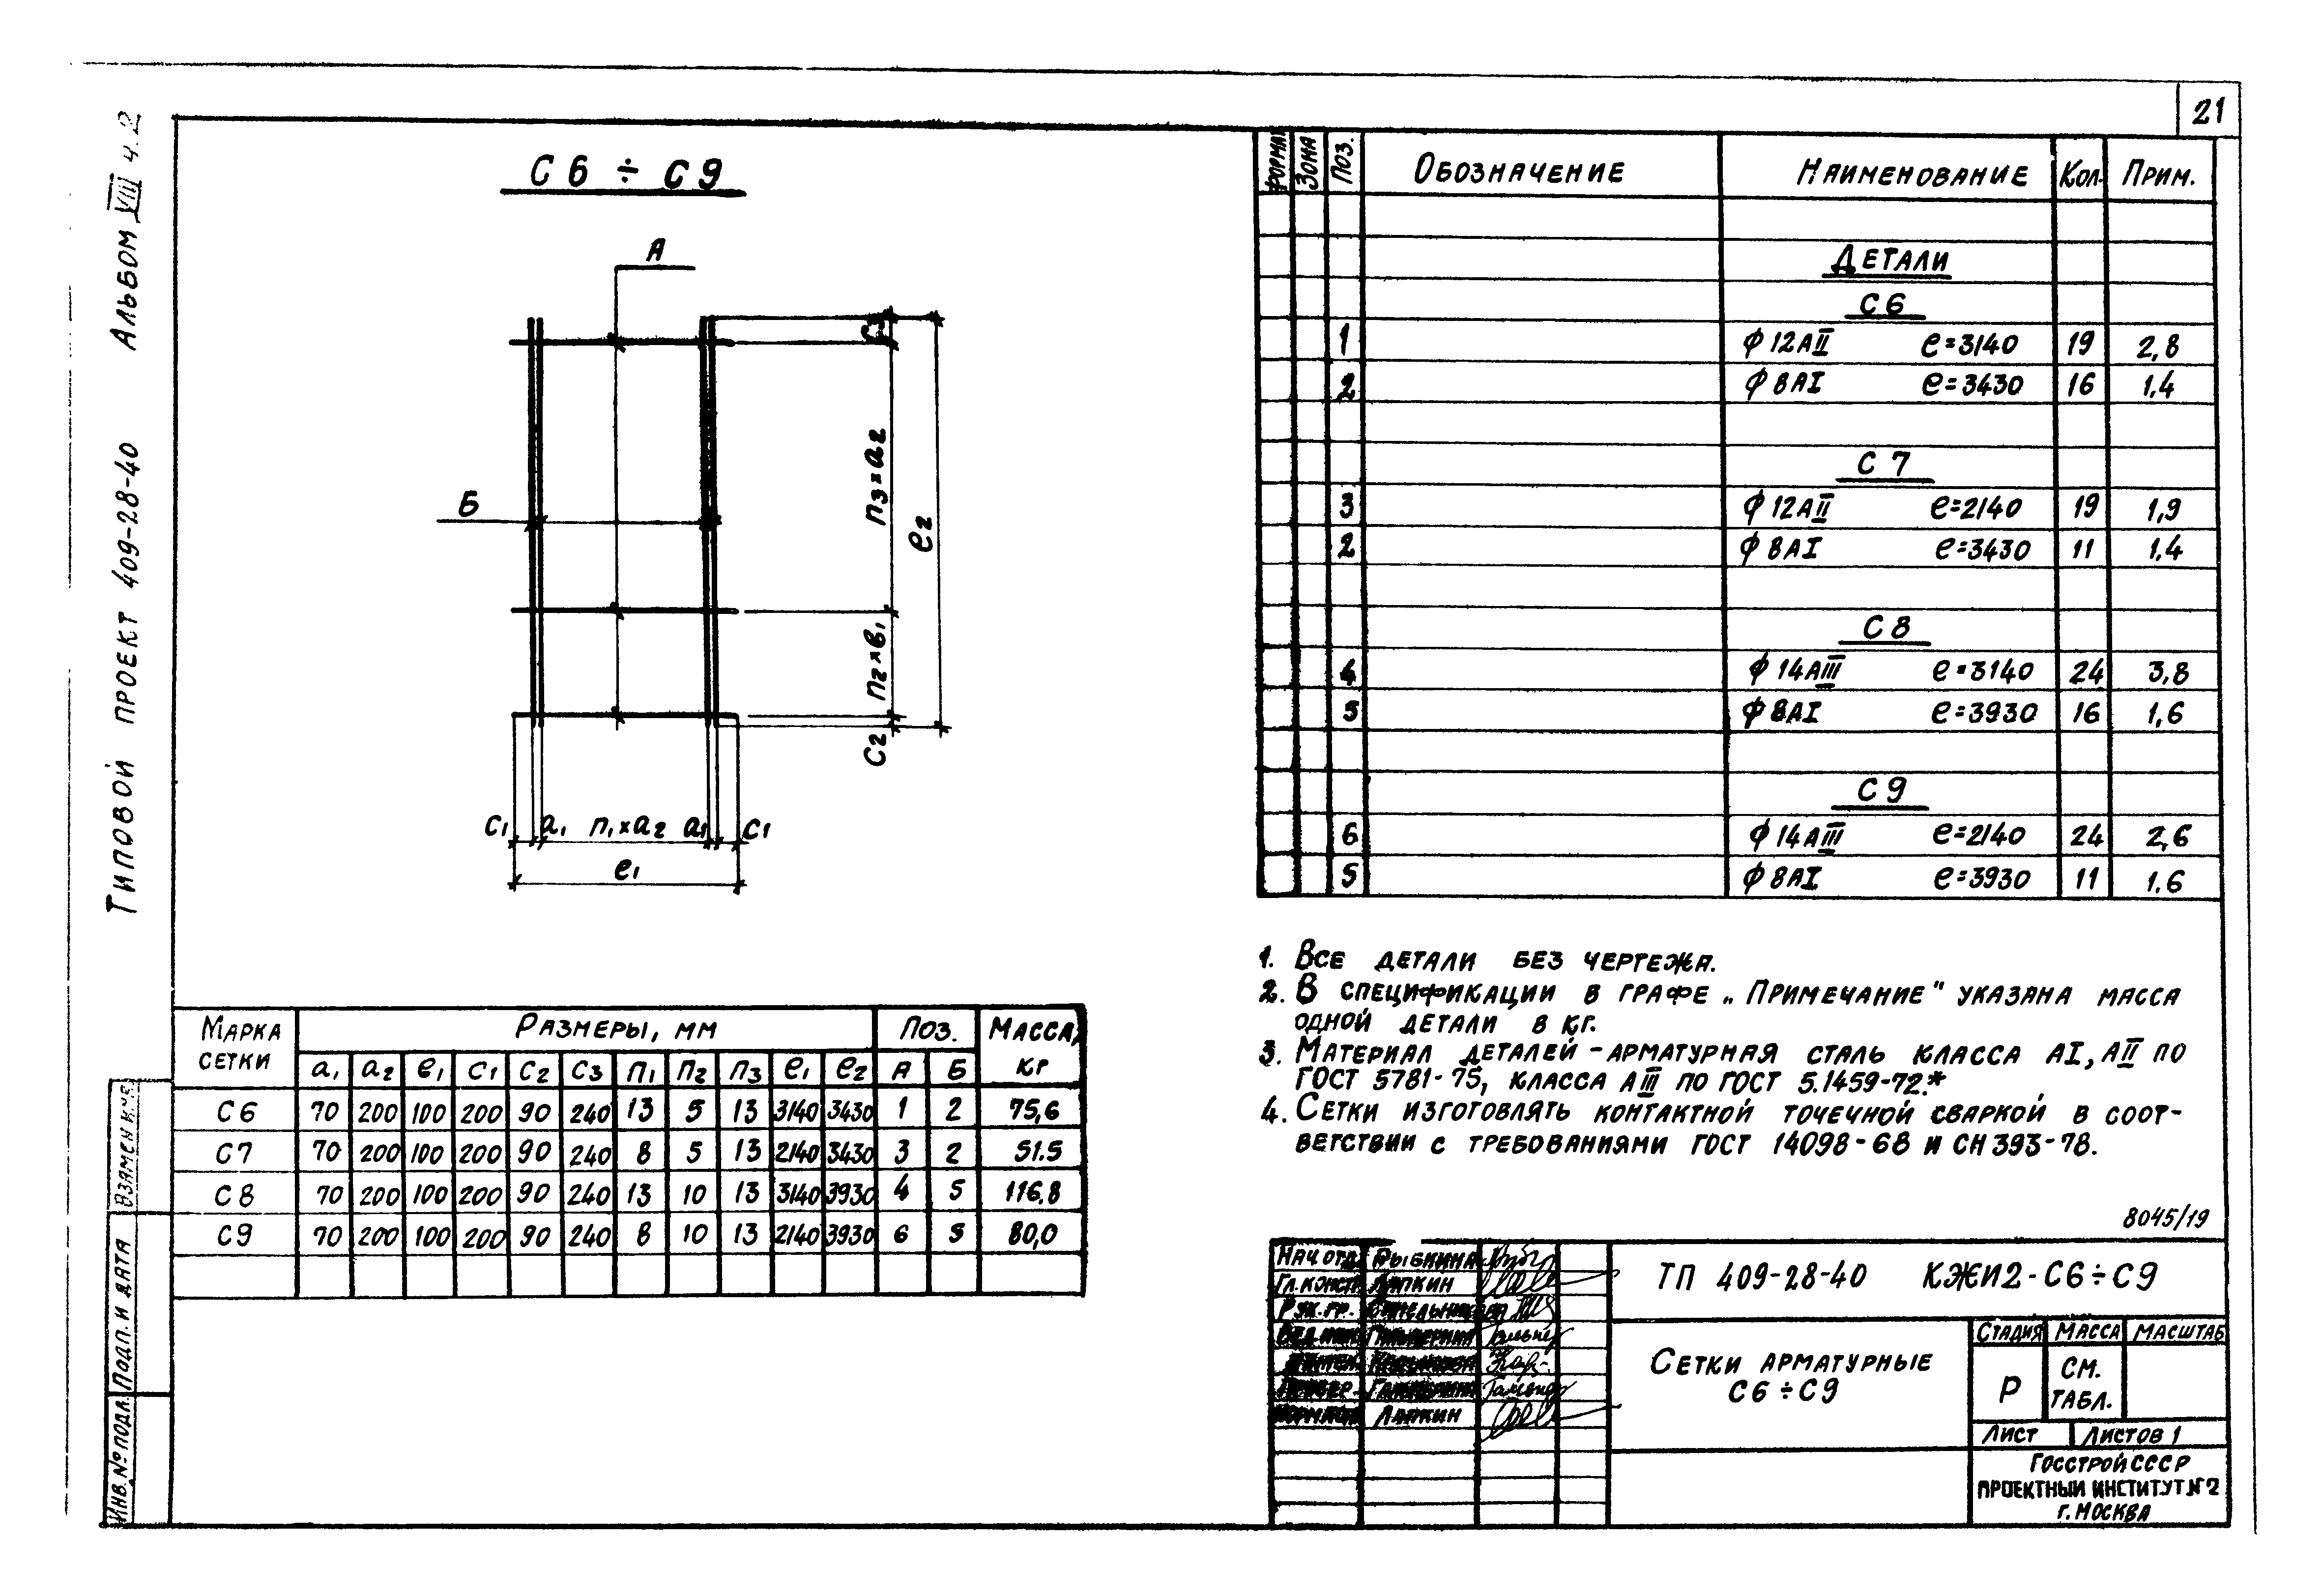 21
Альбом VIII ч.2
Типовой проект 409-28-40
С6 ÷ С9
А
Б
С3
n3×a2
n2×в1
ℓ2
С2
С1 a1 n1×a2 a1 С1
ℓ1
Формат Зона Поз. Обозначение Наименование Кол. Прим.
Детали
С6
1 ф12АII ℓ=3140 19 2,8
2 ф8АI ℓ=3430 16 1,4
С7
3 ф12АII ℓ=2140 19 1,9
2 ф8АI ℓ=3430 11 1,4
С8
4 ф14АIII ℓ=3140 24 3,8
5 ф8АI ℓ=3930 16 1,6
С9
6 ф14АIII ℓ=2140 24 2,6
5 ф8АI ℓ=3930 11 1.6
1. Все детали без чертежа.
2. В спецификации в графе „Примечание" указана масса
одной детали в кг.
3. Материал деталей - арматурная сталь класса АI, АII по
ГОСТ 5781-75, класса АIII по ГОСТ 5.1459-72.*
4. Сетки изготовлять контактной точечной сваркой в соот-
ветствии с требованиями ГОСТ 14098-68 и СН 393-78.
Марка сетки Размеры, мм Поз. Масса, кг
a1 a2 ℓ1 С1 С2 С3 n1 n2 n3 ℓ1 ℓ2 А Б
С6 70 200 100 200 90 240 13 5 13 3140 3430 1 2 75,6
С7 70 200 100 200 90 240 8 5 13 2140 3430 3 2 51.5
С8 70 200 100 200 90 240 13 10 13 3140 3930 4 5 116,8
С9 70 200 100 200 90 240 8 10 13 2140 3930 6 5 80,0
8045/19
Нач.отд. Рыбкина
Гл.констр. Лапкин
Рук.гр.
Лапкин
ТП 409-28-40 КЖИ2-С6÷С9
Сетки арматурные
С6÷С9
Стадия Масса Масштаб
Р см. табл.
Лист Листов 1
Госстрой СССР
Проектный институт №2
г. Москва
Взамен инв.
Подп. и дата
Инв. № подл.